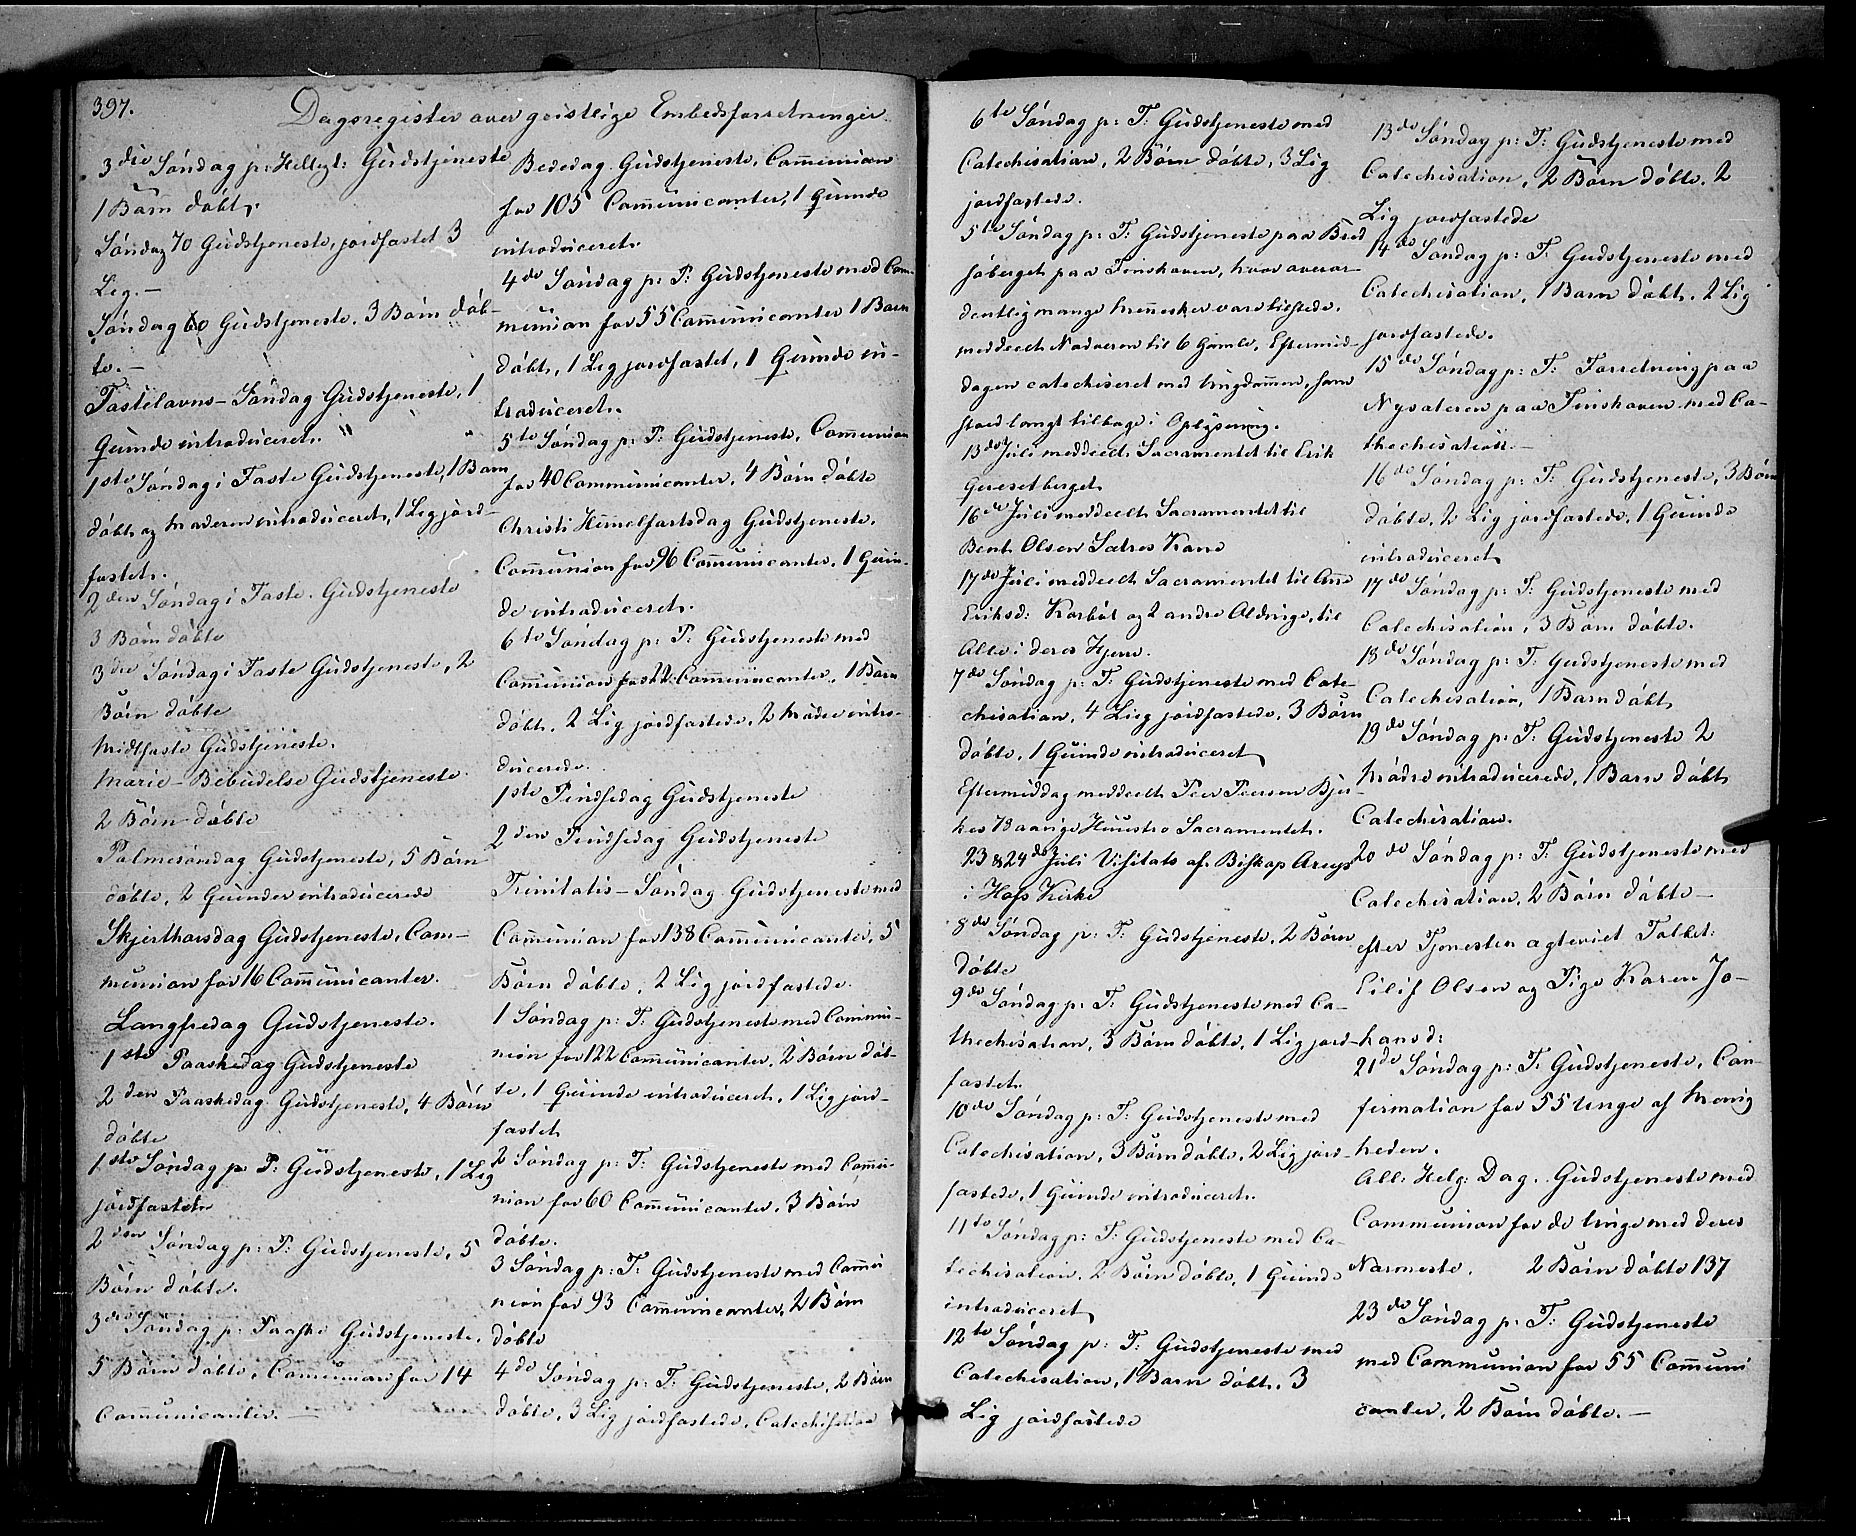 397.
Dagsregister over geistlige Embedsforretninger.
3die Søndag p: Helligt: Gudstjeneste
1 Barn døbt.
Søndag 70 Gudstjeneste, jordfæstet 3
Lig. —
Søndag 60 Gudstjeneste. 3 Børn døb-
te. —
Fastelavns-Søndag Gudstjeneste, 1
Qvinde introduceret.
1ste Søndag i Faste Gudstjeneste, 1 Barn
døbt og Moderen introduceret, 1 Lig jord-
fæstet.
2den Søndag i Faste. Gudstjeneste
3 Børn døbte
3die Søndag i Faste Gudstjeneste, 2
Børn døbte
Midtfaste Gudstjeneste.
Marie-Bebudelse Gudstjeneste.
2 Børn døbte
Palmesøndag Gudstjeneste, 5 Børn
døbte, 2 Qvinder introducerede
Skjerthorsdag Gudstjeneste, Com-
munion for 16 Communicanter.
Langfredag Gudstjeneste.
1ste Paaskedag Gudstjeneste
2den Paaskedag Gudstjeneste, 4 Børn
døbte
1ste Søndag p: P: Gudstjeneste, 1 Lig
jordfæstet
2den Søndag p: P: Gudstjeneste, 5
Børn døbte.
3die Søndag p: Paaske Gudstjeneste.
5 Børn døbte, Communion for 14
Communicanter. —
Bededag Gudstjeneste, Communion
for 105 Communicanter, 1 Qvinde
introduceret.
4de Søndag p: P: Gudstjeneste med Com-
munion for 55 Communicanter 1 Barn
døbt, 1 Lig jordfæstet, 1 Qvinde in-
troduceret.
5te Søndag p: P: Gudstjeneste, Communion
for 40 Communicanter, 4 Børn døbte
Christi Himmelfartsdag Gudstjeneste.
Communion for 96 Communicanter, 1 Qvin-
de introduceret.
6te Søndag p: P: Gudstjeneste med
Communion for 22 Communicanter, 1 Barn
døbt. 2 Lig jordfæstede, 2 Mødre intro-
ducerede.
1ste Pindsedag Gudstjeneste
2den Pindsedag Gudstjeneste
Trinitatis-Søndag Gudstjeneste med
Communion for 138 Communicanter, 5
Børn døbte, 2 Lig jordfæstede.
1 Søndag p: T: Gudstjeneste med Commu-
nion for 122 Communicanter, 2 Børn døb-
te, 1 Qvinde introduceret, 1 Lig jord-
fæstet
2 Søndag p: T: Gudstjeneste med Commu-
nion for 60 Communicanter. 3 Børn
døbte.
3 Søndag p: T: Gudstjeneste med Commu
nion for 93 Communicanter, 2 Børn
døbte
4de Søndag p: T: Gudstjeneste, 2 Børn
døbte, 3 Lig jordfæstede. Catechisation
6te Søndag p: T: Gudstjeneste med
Catechisation, 2 Børn døbte, 3 Lig
jordfæstede.
5te Søndag p: T: Gudstjeneste paa Bred
sjøberget paa Finskoven, hvor overor-
dentlig mange Mennesker vare tilstede.
meddeelt Nadveren til 6 Gamle, Eftermid-
dagen catechiseret med Ungdommen, som
stod langt tilbage i Oplysning.
13de Juli meddeelt Sacramentet til Erik
berget
16de Juli meddeelt Sacramentet til
Bent Olsen Sætres Kone
17de Juli meddeelt Sacramentet til Ane
Eriksd: og 2 andre Aldrige, til
Alle i deres Hjem.
7de Søndag p: T: Gudstjeneste med Cate-
chisation, 4 Lig jordfæstede, 3 Børn
døbte, 1 Qvinde introduceret
Eftermiddag meddeelt Peer Peersen Bjer-
kes 78 aarige Huustro Sacramentet.
23 & 24de Juli Visitats af Biskop Arup
i Hofs Kirke
8de Søndag p: T: Gudstjeneste, 2 Børn
døbte
9de Søndag p: T: Gudstjeneste med Ca-
thechisation, 3 Børn døbte, 1 Lig jord-
fæstet
10de Søndag p: T: Gudstjeneste med
Catechisation, 3 Børn døbte, 2 Lig jord-
fæstede, 1 Qvinde introduceret.
11te Søndag p: T: Gudstjeneste med Ca-
techisation. 2 Børn døbte, 1 Qvinde
introduceret
12te Søndag p: T: Gudstjeneste med
Catechisation, 1 Barn døbt. 3
Lig jordfæstede
13de Søndag p: T: Gudstjeneste med
Catechisation, 2 Børn døbte. 2
Lig jordfæstede
14de Søndag p: T: Gudstjeneste med
Catechisation, 1 Barn døbt. 2 Lig
jordfæstede.
15de Søndag p: T: Forretning paa
Nysæteren paa Finskoven med Ca-
thechisation. —
16de Søndag p: T: Gudstjeneste, 3 Børn
døbte, 2 Lig jordfæstede, 1 Qvinde
introduceret
17de Søndag p: T: Gudstjeneste med
Catechisation, 3 Børn døbte.
18de Søndag p: T: Gudstjeneste med
Catechisation, 1 Barn døbt
19de Søndag p: T: Gudstjeneste 2
Mødre introducerede, 1 Barn døbt
Catechisation.
20de Søndag p: T: Gudstjeneste med
Catechisation, 2 Børn døbte —
efter Tjenesten agteviet Folket:
Eilif Olsen og Pige Karen Jo-
hansd:
21de Søndag p: T: Gudstjeneste, Con-
firmation for 55 Unge af Menig
heden.
All: Helg: Dag. Gudstjeneste med
Communion for de Unge med deres
Nærmeste. 2 Børn døbte 137
23de Søndag p: T: Gudstjeneste
med Communion for 55 Communi
canter, 2 Børn døbte. —